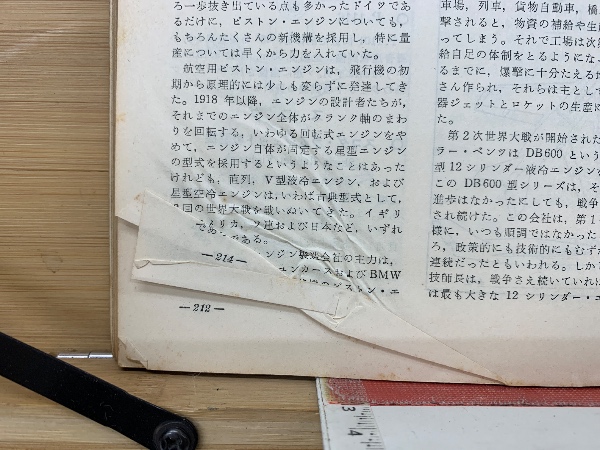 ろ一歩抜き出ている点も多かったドイツであ
るだけに，ピストン・エンジンについても，
もちろんたくさんの新機構を採用し，特に量
産については早くから力を入れていた。
航空用ピストン・エンジンは，飛行機の初
期から原理的には少しも変らずに発達してき
た。1918 年以降，エンジンの設計者たちが，
それまでのエンジン全体がクランク軸のまわ
りを回転する，いわゆる回転式エンジンをや
めて，エンジン自体が固定する星型エンジン
の型式を採用するというようなことはあった
けれども，直列，V型液冷エンジン，および
星型空冷エンジンは，いわば古典型式として，
2回の世界大戦を戦いぬいてきた。イギリ
メリカ，ソ連および日本など，いずれ
である。
―214―
ンジン製造会社の主力は，
ユンカースおよび BMW
ピストン・エ
―212―
車場，列車，貨物自動車，橋
撃されると，物資の補給や生
ってしまう。それで工場は次
給自足の体制をとるようにな
るまでに，爆撃に十分たえる地
さん作られ，それらは主とし
器ジェットとロケットの生産に
た。
第2次世界大戦が開始された
ラー・ベンツは DB 600 という
型 12 シリンダー液冷エンジン
この DB 600 型シリーズは，そ
進歩はなかったにしても，戦争
され続けた。この会社は，第1
様に，いつも順調ではなかった
ろ，政策的にも技術的にもむず
連続だったともいわれる。しか
技師長は，戦争さえ続いていれ
は最も大きな 12 シリンダー・エ
3
4